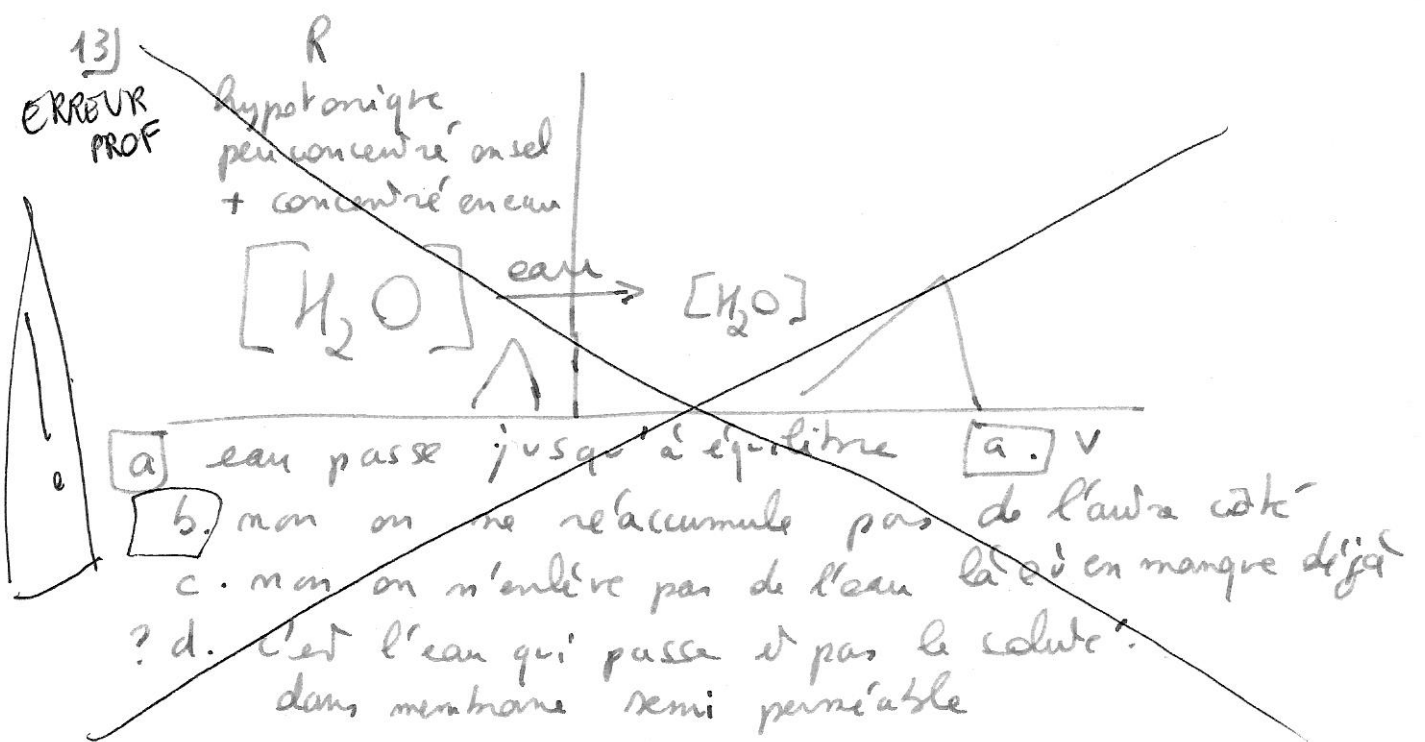 13)
R
ERREUR
PROF
hypotonique
peu concentré en sel
+ concentré en eau
[H₂O] eau → [H₂O]
a eau passe jusqu'à équilibre a. V
b. non on ne réaccumule pas de l'autre côté
c. non on n'enlève pas de l'eau là où en manque déjà
? d. c'est l'eau qui passe et pas le soluté.
dans membrane semi perméable